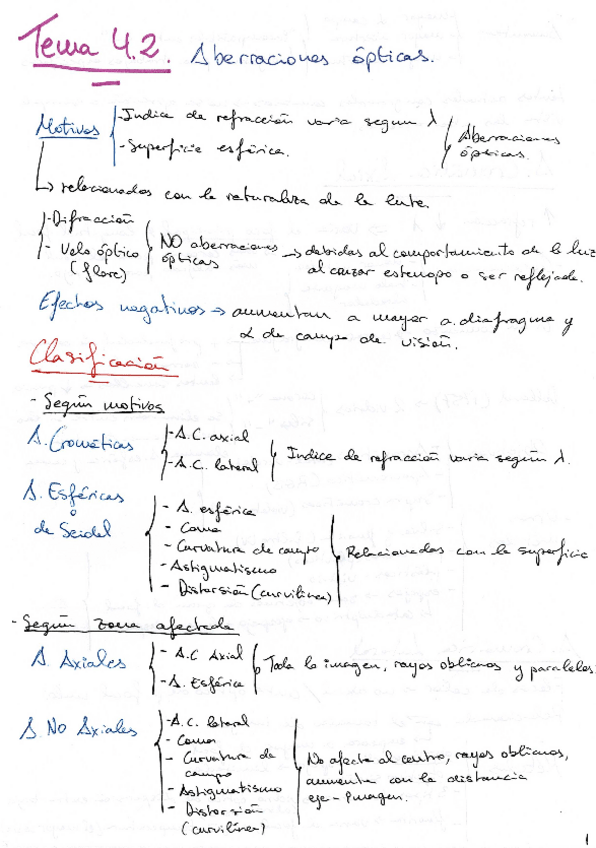 Tema 4.2. Aberraciones ópticas.
Motivos
- Indice de refracción varia segun λ
- Superficie esférica.
Aberraciones ópticas.
↳ relacionados con la naturaleza de la lente.
- Difracción
- Velo óptico (flare)
NO aberraciones ópticas → debidas al comportamiento de la luz
al cruzar estenopo o ser reflejada.
Efectos negativos → aumentan a mayor a. diafragma y
α de campo de visión.
Clasificación
- Según motivos
A. Cromáticas
- A.C. axial
- A.C. lateral
Indice de refracción varia según λ.
A. Esféricas
o
de Seidel
- A. esférica
- Coma
- Curvatura de campo
- Astigmatismo
- Distorsión (curvilínea)
Relacionadas con la superficie
- Según zona afectada
A. Axiales
- A.C Axial
- A. Esférica
Toda la imagen, rayos oblicuos y paralelos.
A. No Axiales
- A.C. lateral
- Coma
- Curvatura de
campo
- Astigmatismo
- Distorsión
(curvilínea)
No afecta al centro, rayos oblicuos,
aumenta con la distancia
eje - P.imagen.
1